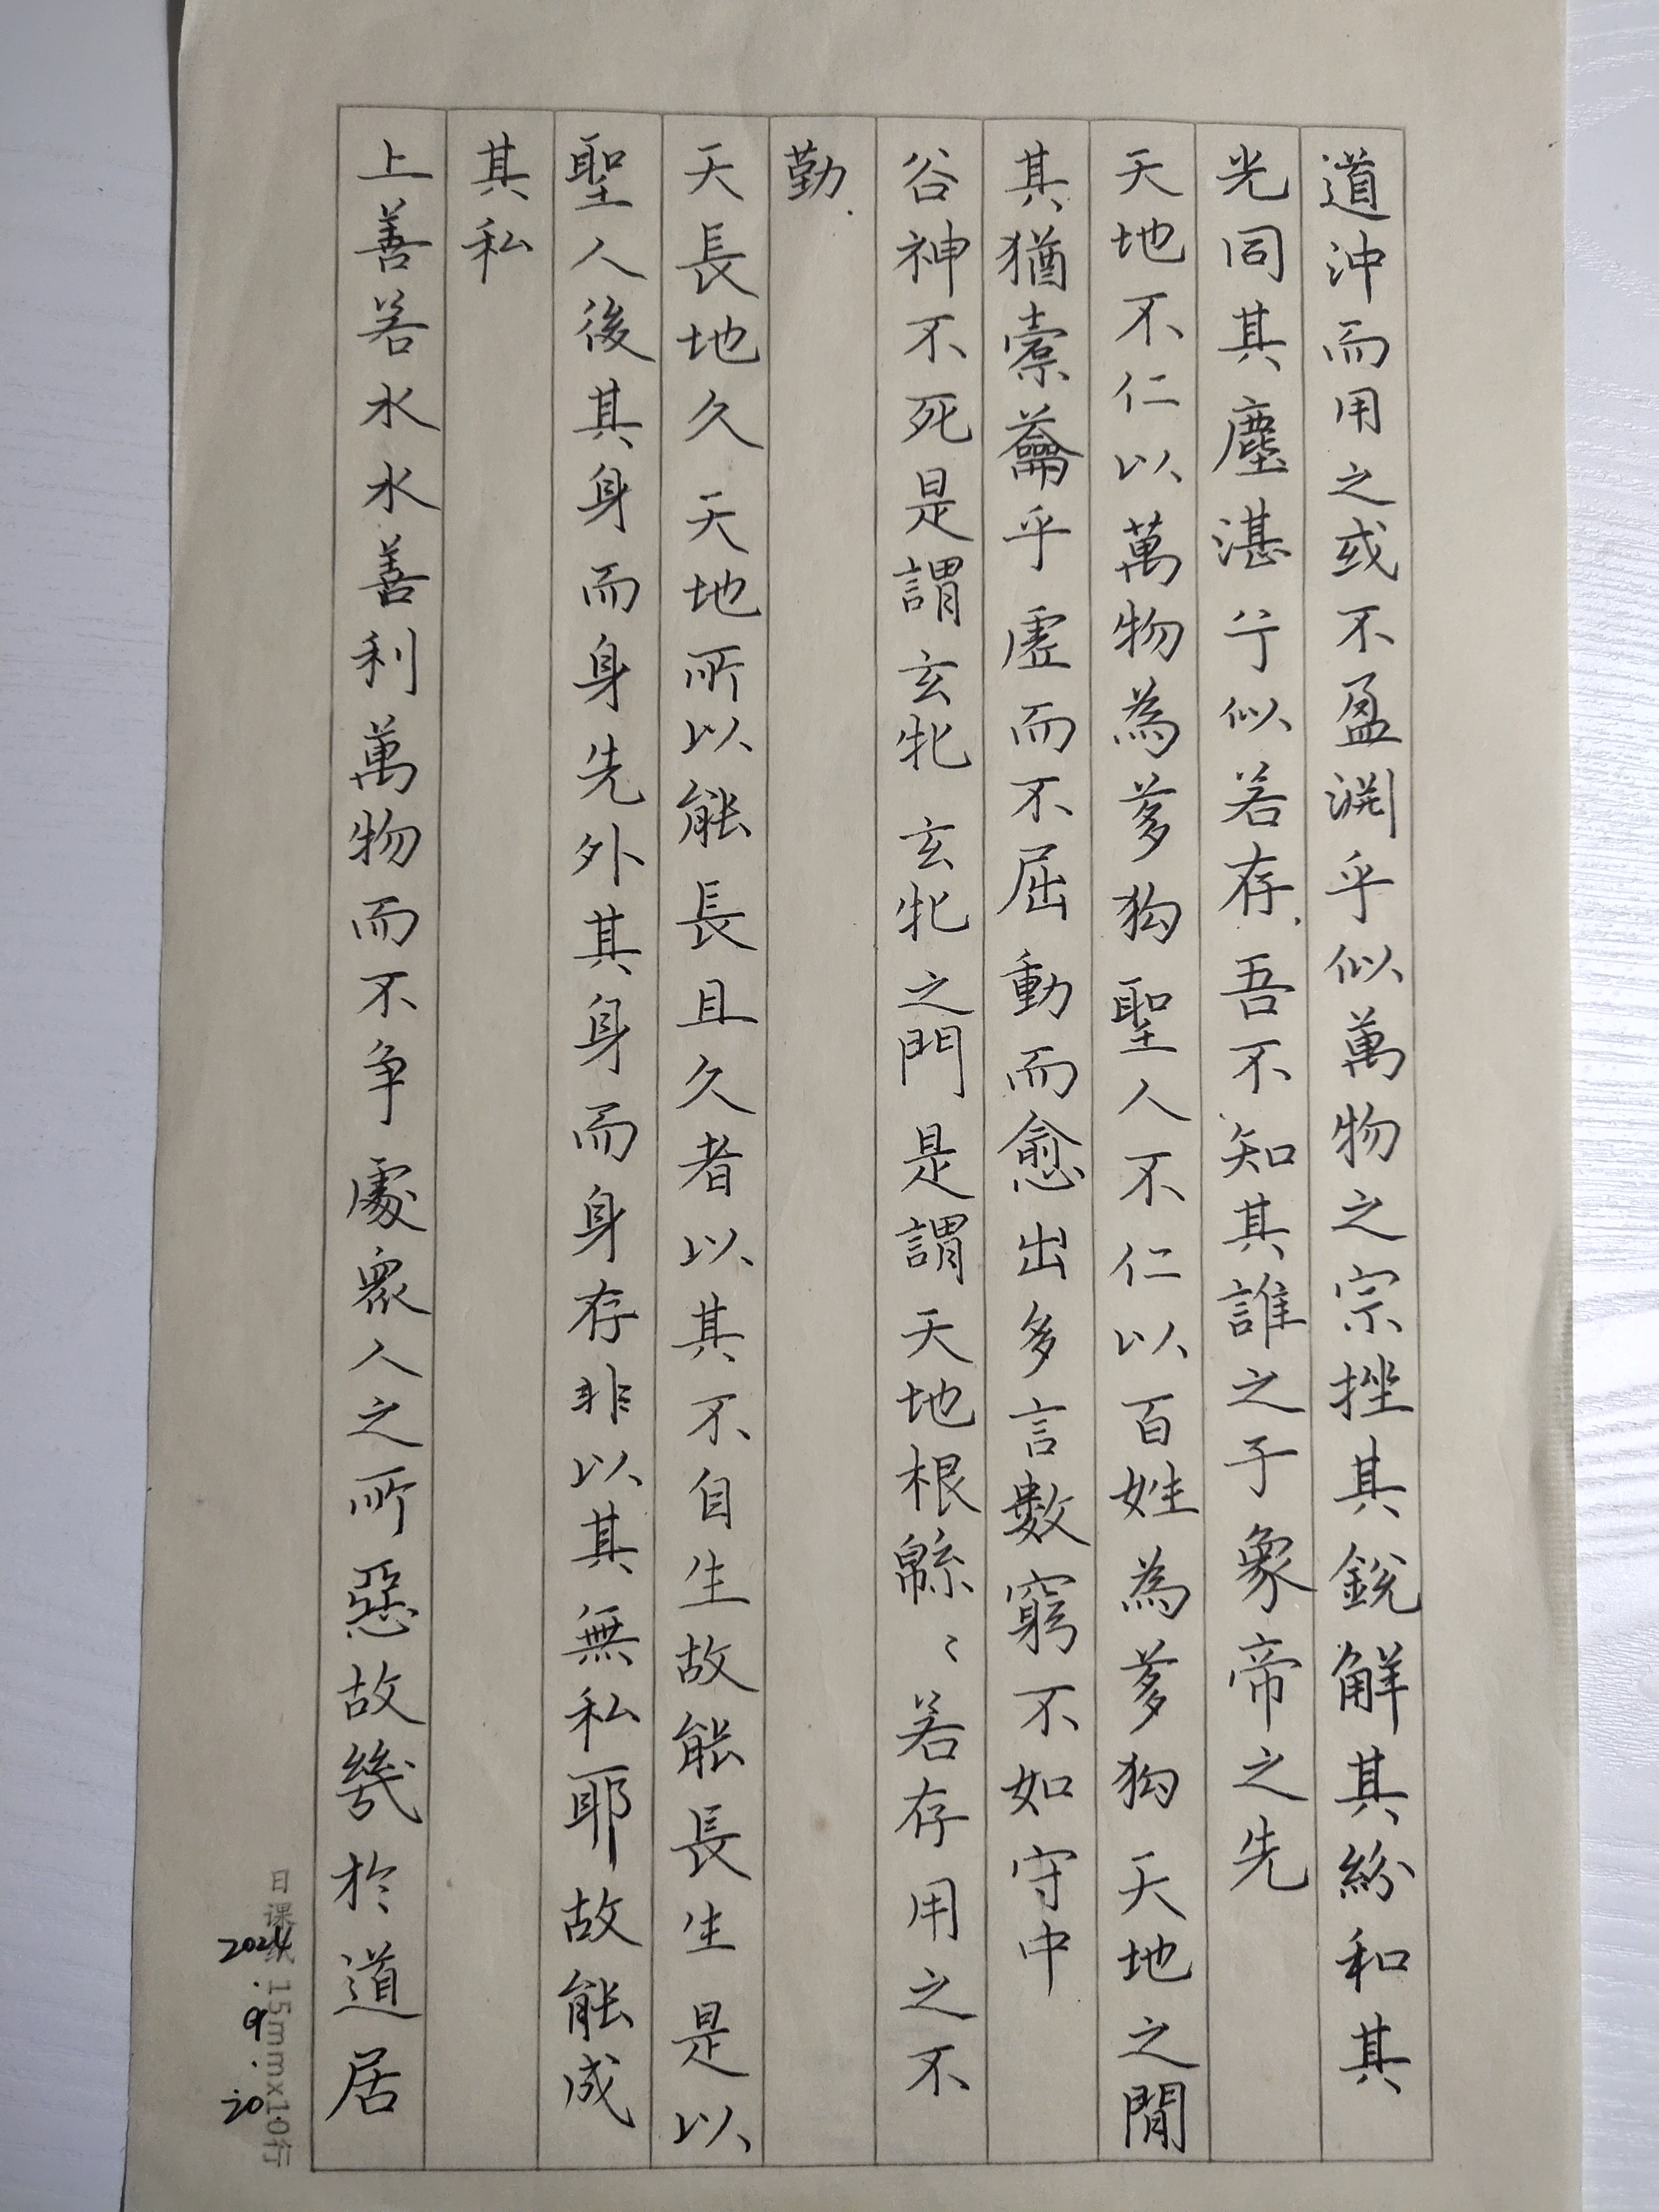 道沖而用之或不盈淵乎似萬物之宗挫其銳解其紛和其
光同其塵湛兮似若存吾不知其誰之子象帝之先
天地不仁以萬物為芻狗聖人不仁以百姓為芻狗天地之閒
其猶橐籥乎虛而不屈動而愈出多言數窮不如守中
谷神不死是謂玄牝玄牝之門是謂天地根緜〻若存用之不
勤
天長地久天地所以能長且久者以其不自生故能長生是以
聖人後其身而身先外其身而身存非以其無私耶故能成
其私
上善若水水善利萬物而不争處衆人之所惡故幾於道居
日课纸 15mmx10行
2024.9.20